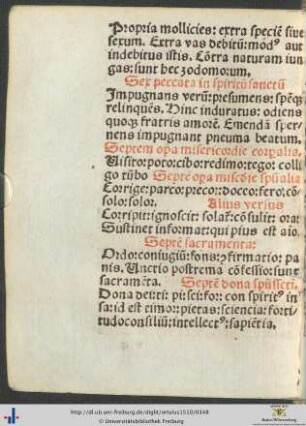 Propria mollicies: extra speciē siue
sexum. Extra vas debitū: modꝰ aut
indebitus istis. Cōtra naturam iun
gas: sunt hec zodomorum.
Sex peccata in spiritū sanctū
Impugnans verū: presumens: spēqꝫ
relinquēs. Hinc induratus: odiens
quoqꝫ fratris amorē. Emendā sper⸗
nens impugnant pneuma beatum.
Septem opa misericordie corpalia.
Uisito: poto: cibo: redimo: tego: colli
go: cōdo Septē opa misc̄orдie spūalia
Corrige: parco: precor: doceo: fero: cō⸗
solor: solor. Alius versus
Corripit: ignoscit: solat̄: cōsulit: orat:
Sustinet informat: qui pius est
Septē sacramenta:
Ordo: coniugiū: fons: ꝯfirmatio: pa
nis. Unctio postrema cōfessio: sunt
sacramēta. Septē dona spūsscti.
Dona dei: ti: pi: sci: for: con spiritꝰ in
sa: id est timor: pietas: sciencia: forti⸗
tudo consiliū: intellectꝰ: sapiētia.
http://dl.ub.uni-freiburg.de/diglit/ortulus1510/0348
© Universitätsbibliothek Freiburg
Baden-Württemberg